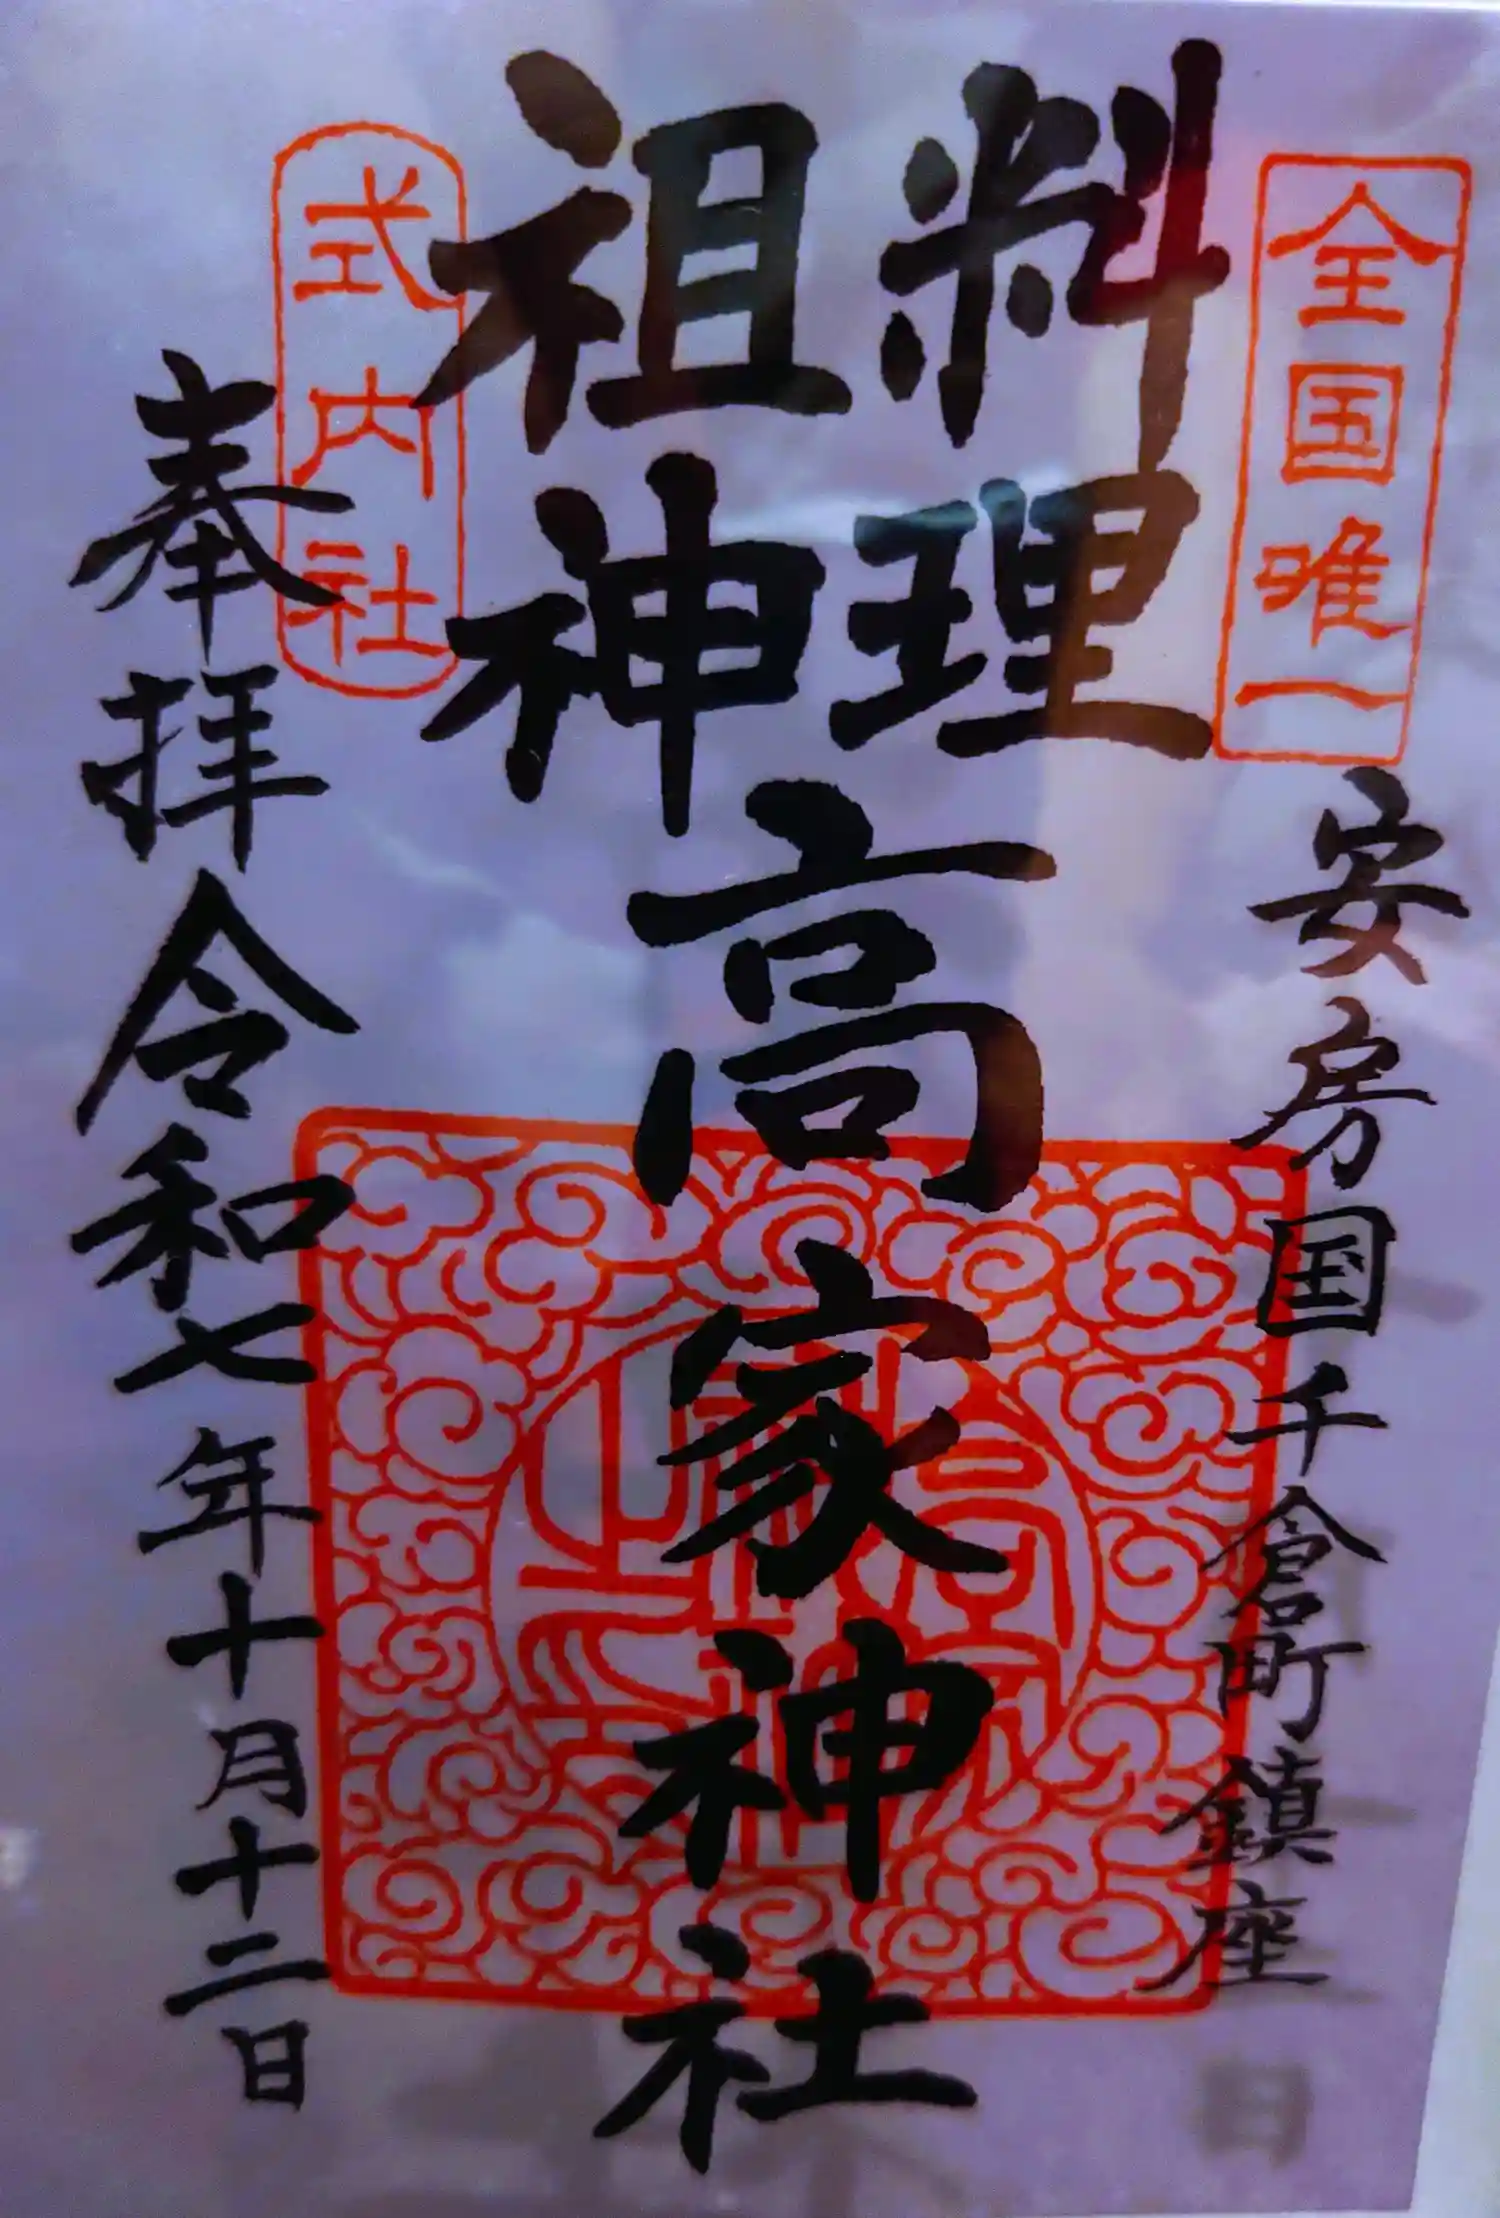 全国唯一
安房国千倉町鎮座
料理
祖神
高家神社
式内社
奉拝
令和七年十月十二日